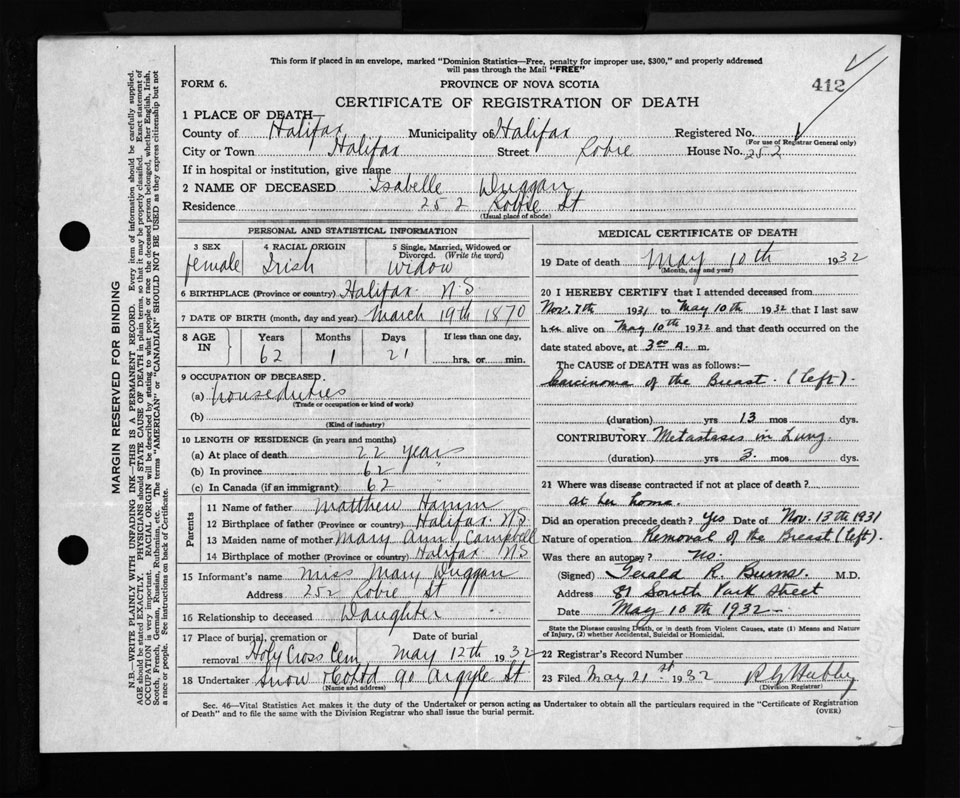 This form if placed in an envelope, marked "Dominion Statistics—Free, penalty for improper use, $300," and properly addressed
will pass through the Mail "FREE"
FORM 6. PROVINCE OF NOVA SCOTIA 412
CERTIFICATE OF REGISTRATION OF DEATH
1 PLACE OF DEATH—
County of Halifax Municipality of Halifax Registered No.
(For use of Registrar General only)
City or Town Halifax Street Robie House No. 252
If in hospital or institution, give name
2 NAME OF DECEASED Isabelle Duggan
Residence 252 Robie St
(Usual place of abode)
PERSONAL AND STATISTICAL INFORMATION
3 SEX 4 RACIAL ORIGIN 5 Single, Married, Widowed or
Divorced. (Write the word)
female Irish widow
6 BIRTHPLACE (Province or country) Halifax N.S
7 DATE OF BIRTH (month, day and year) March 19th 1870
8 AGE IN Years Months Days If less than one day,
62 1 21 hrs. or min.
9 OCCUPATION OF DECEASED.
(a) houseduties
(Trade or occupation or kind of work)
(b)
(Kind of industry)
10 LENGTH OF RESIDENCE (in years and months)
(a) At place of death 22 years
(b) In province 62 "
(c) In Canada (if an immigrant) 62 "
Parents
11 Name of father Matthew Hamm
12 Birthplace of father (Province or country) Halifax N.S
13 Maiden name of mother Mary Ann Campbell
14 Birthplace of mother (Province or country) Halifax N.S
15 Informant's name Miss Mary Duggan
Address 252 Robie St
16 Relationship to deceased Daughter
17 Place of burial, cremation or Date of burial
removal Holy Cross Cem May 12th 1932
18 Undertaker Snow & Co Ltd 90 Argyle St
(Name and address)
MEDICAL CERTIFICATE OF DEATH
19 Date of death May 10th 1932
(Month, day and year)
20 I HEREBY CERTIFY that I attended deceased from
Nov. 7th 1931 to May 10th 1932 that I last saw
her alive on May 10th 1932 and that death occurred on the
date stated above, at 3 00 A. m.
The CAUSE OF DEATH was as follows:—
Carcinoma of the Breast. (left).
(duration) yrs 13 mos dys.
CONTRIBUTORY Metastasis in Lung.
(duration) yrs 3. mos dys.
21 Where was disease contracted if not at place of death?
at her home.
Did an operation precede death? Yes Date of Nov. 13th 1931
Nature of operation Removal of the Breast (left).
Was there an autopsy? No.
(Signed) Gerald R. Burns. M.D.
Address 81 South Park Street
Date May 10th 1932
State the Disease causing Death, or in death from Violent Causes, state (1) Means and Nature
of Injury, (2) whether Accidental, Suicidal or Homicidal.
22 Registrar's Record Number
23 Filed May 21st 1932
(Division Registrar)
Sec. 46—Vital Statistics Act makes it the duty of the Undertaker or person acting as Undertaker to obtain all the particulars required in the "Certificate of Registration
of Death" and to file the same with the Division Registrar who shall issue the burial permit.
(OVER)
MARGIN RESERVED FOR BINDING
N.B.—WRITE PLAINLY WITH UNFADING INK—THIS IS A PERMANENT RECORD. Every item of information should be carefully supplied.
AGE should be stated EXACTLY. PHYSICIANS should STATE CAUSE OF DEATH in plain terms, so that it may be properly classified. Exact statement of
OCCUPATION is very important. RACIAL ORIGIN will be described by stating to what people or race the deceased person belonged, whether English, Irish,
Scotch, French, German, Russian, Ruthenian, etc. The terms "AMERICAN" or "CANADIAN" SHOULD NOT BE USED as they express citizenship but not
a race or people. See instructions on back of Certificate.